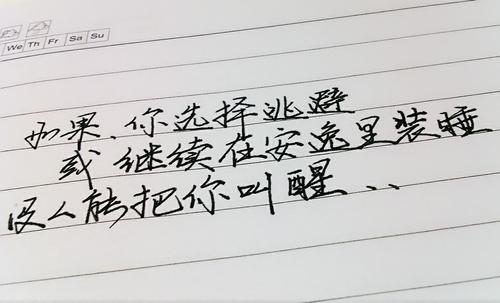 We Th Fr Sa Su
如果、你选择逃避
或继续在安逸里装睡
没人能把你叫醒...